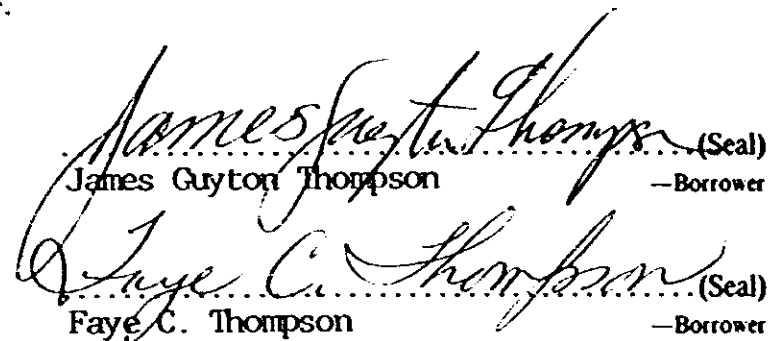 James Guyton Thompson (Seal)
James Guyton Thompson —Borrower
Faye C. Thompson (Seal)
Faye C. Thompson —Borrower